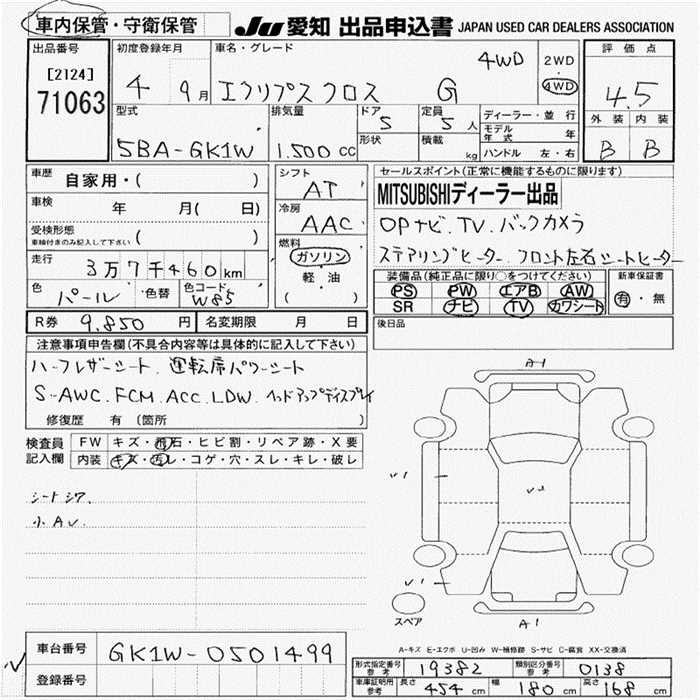 車内保管・守衛保管
JU 愛知 出品申込書 JAPAN USED CAR DEALERS ASSOCIATION
出品番号
[2124]
71063
初度登録年月
4 9月
車名・グレード
エクリプス クロス G 4WD
2WD
4WD
評価点
4.5
外装 内装
B B
型式
5BA-GK1W
排気量
1.500 cc
ドア
5
形状
定員
5人
積載
kg
ディーラー・並行
モデル年式 年
ハンドル 左・右
車歴
自家用・( )
車検 年 月( 日)
受検形態
車検付きのみ記入して下さい ( )
走行
3万7千460km
色
パール
色替
色コード
W85
シフト
AT
冷房
AAC
燃料
ガソリン
軽・油
( )
セールスポイント(正常に機能するものに限ります)
MITSUBISHIディーラー出品
OPナビ.TV.バックカメラ
ステアリングヒーター.フロント左右シートヒーター
装備品(純正品に限り○をつけてください)
PS PW エアB AW
SR ナビ TV カワシート
新車保証書
有・無
R券 9.850 円 名変期限 月 日
後日品
注意事項申告欄(不具合内容等は具体的に記入して下さい)
ハーフレザーシート.運転席パワーシート
S-AWC.FCM.ACC.LDW.ヘッドアップディスプレイ
修復歴 有(箇所 )
検査員
記入欄
FW キズ・飛石・ヒビ割・リペア跡・X要
内装 キズ・汚レ・コゲ・穴・スレ・キレ・破レ
シートシワ.
小AU.
A1
A1
スペア
A-キズ E-エクボ U-凹み W-補修跡 S-サビ C-腐食 XX-交換済
車台番号
GK1W-0501499
登録番号
形式指定番号
参考
19382
類別区分番号
参考
0138
車庫証明用
参考
長さ 454 cm 幅 180 cm 高さ 168 cm